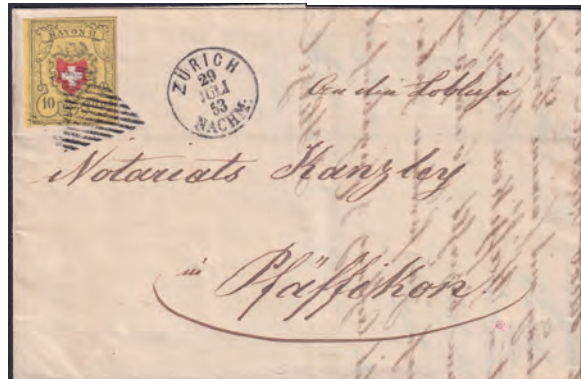 RAYON II.
10
ZÜRICH
29
JULI
53
NACHM.
An die Lobliche
Notariats Kanzley
in
Pfäffikon